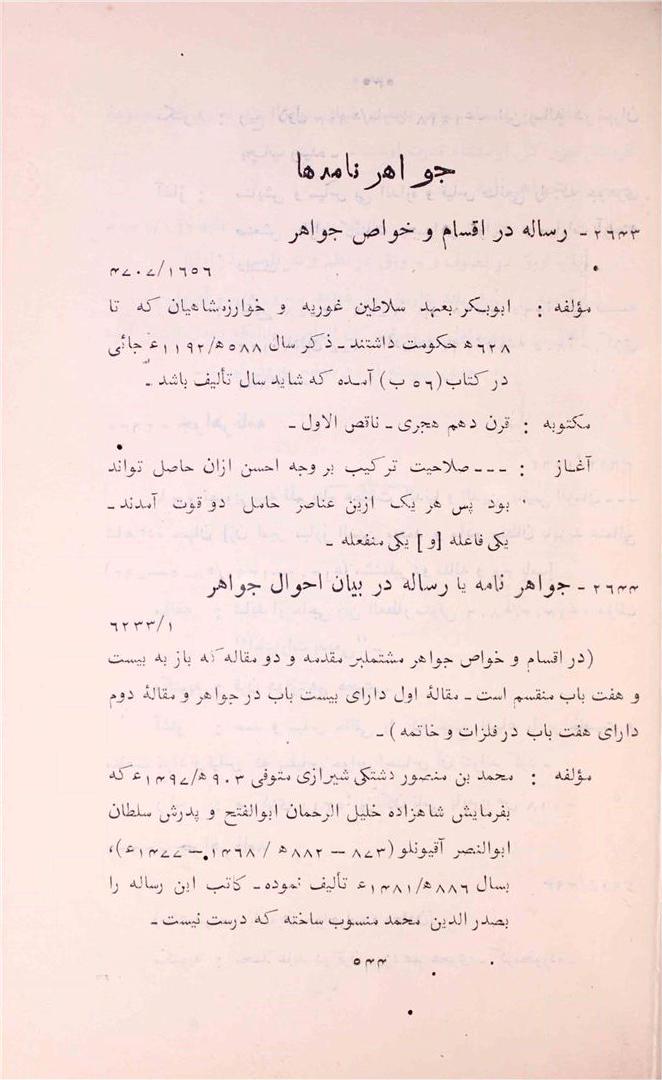 جواهر نامه‌ها
۲۶۴۳ - رساله در اقسام و خواص جواهر
۴۷۰۷/۱۶۵۶
مؤلفه : ابوبکر بعهد سلاطین غوریه و خوارزمشاهیان که تا
۶۲۸ھ حکومت داشتند - ذکر سال ۵۸۸ھ/۱۱۹۲ء جائی
در کتاب (۵۶ ب) آمده که شاید سال تألیف باشد -
مکتوبه : قرن دهم هجری - ناقص الاول -
آغاز : --- صلاحیت ترکیب بر وجه احسن ازان حاصل تواند
بود پس هر یک ازین عناصر حامل دو قوت آمدند -
یکی فاعله [و] یکی منفعله -
۲۶۴۴ - جواهر نامه یا رساله در بیان احوال جواهر
۶۲۳۳/۱
(در اقسام و خواص جواهر مشتملبر مقدمه و دو مقاله که باز به بیست
و هفت باب منقسم است - مقالهٔ اول دارای بیست باب در جواهر و مقالهٔ دوم
دارای هفت باب در فلزات و خاتمه) -
مؤلفه : محمد بن منصور دشتکی شیرازی متوفی ۹۰۳ھ/۱۴۹۷ء که
بفرمایش شاهزاده خلیل الرحمان ابوالفتح و پدرش سلطان
ابوالنصر آقیونلو (۸۷۳ — ۸۸۲ھ / ۱۴۶۸ — ۱۴۷۷ء)،
بسال ۸۸۶ھ/۱۴۸۱ء تألیف نموده - کاتب این رساله را
بصدر الدین محمد منسوب ساخته که درست نیست -
۵۴۴